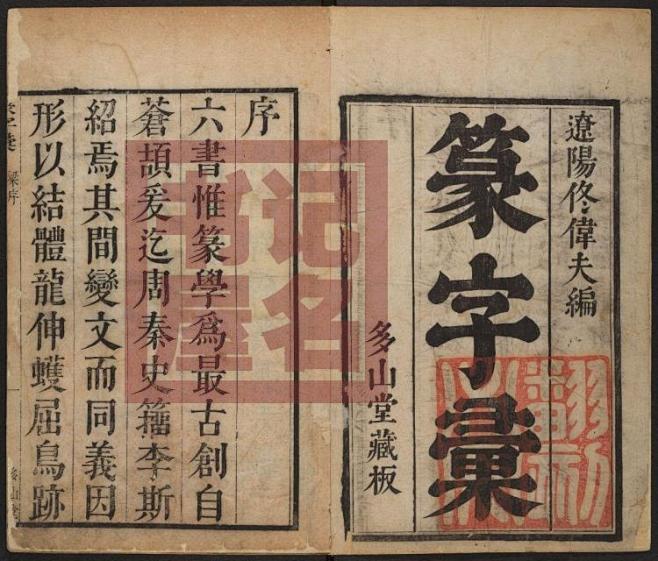 遼陽佟偉夫編
篆字彙
多山堂藏板
序
六書惟篆學爲最古創自
蒼頡爰迄周秦史籀李斯
紹焉其間變文而同義因
形以結體龍伸蠖屈鳥跡
梁序
记名
书屋